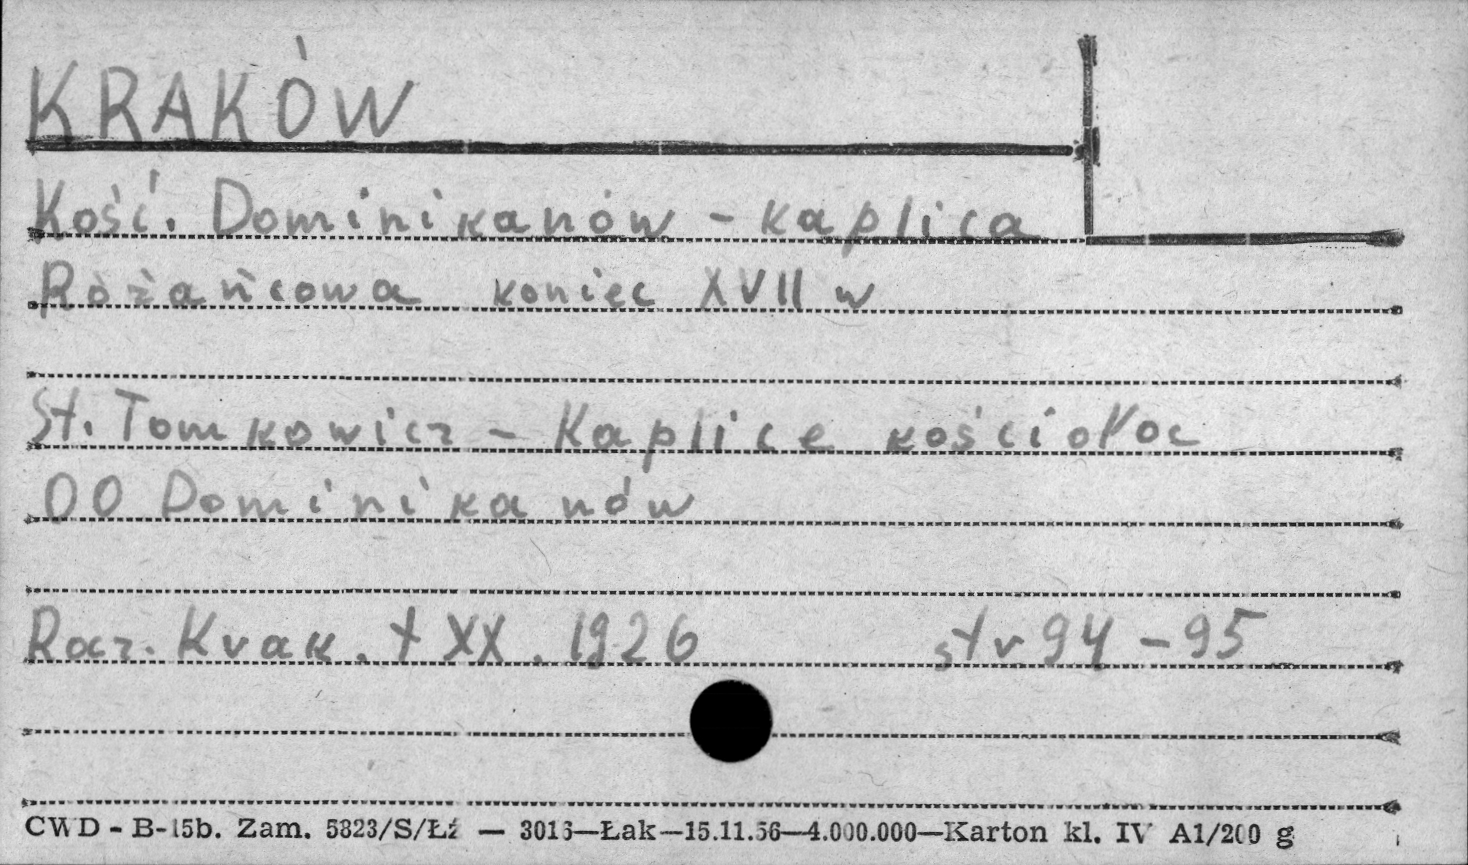 KRAKÓW
Kość. Dominikanów - kaplica
Różańcowa koniec XVII w
St. Tomkowicz - Kaplice kościołoc
OO Dominikanów
Rocz. Krak. t XX. 1926 str 94-95
CWD - B-15b. Zam. 5823/S/Łź — 3016—Łak—15.11.56—4.000.000—Karton kl. IV A1/200 g